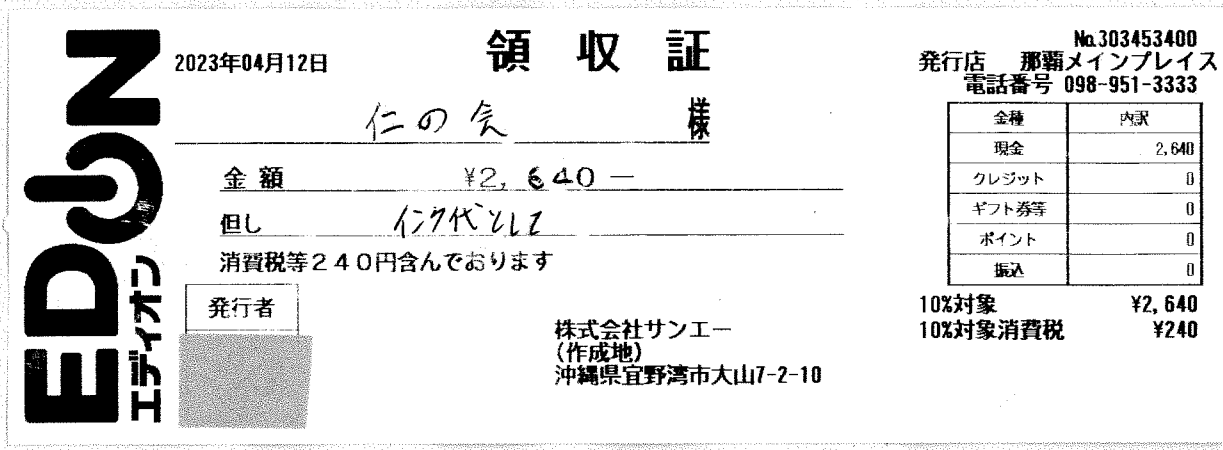 EDION
エディオン
2023年04月12日
領収証
仁の会 様
金額 ¥2,640−
但し インク代として
消費税等240円含んでおります
発行者
株式会社サンエー
(作成地)
沖縄県宜野湾市大山7-2-10
No.303453400
発行店 那覇メインプレイス
電話番号 098-951-3333
金種 内訳
現金 2,640
クレジット 0
ギフト券等 0
ポイント 0
振込 0
10%対象 ¥2,640
10%対象消費税 ¥240